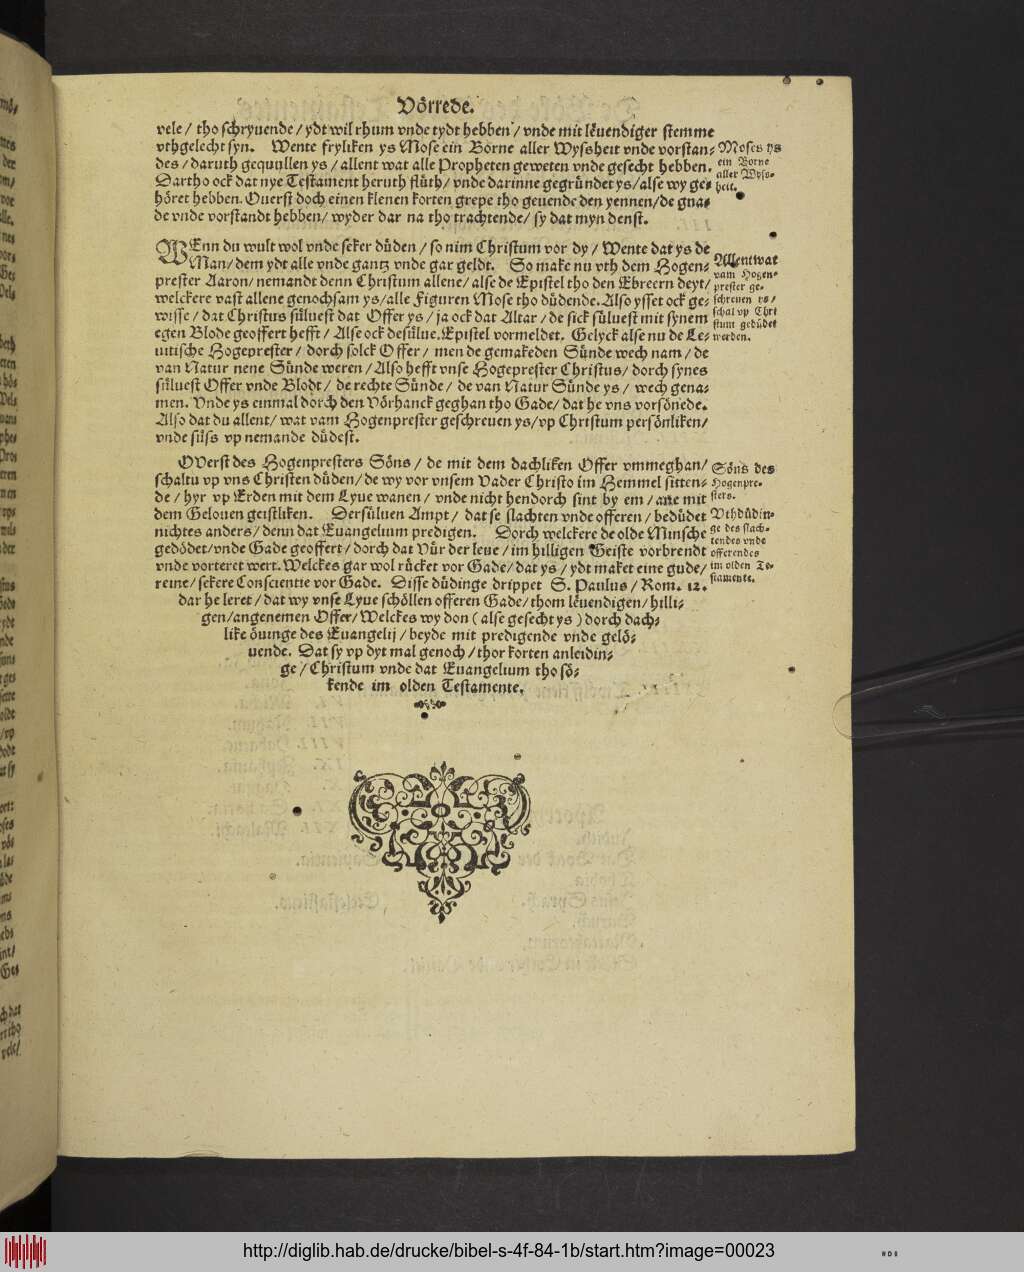 Vörrede.
vele / tho schryuende / ydt wil rhum vnde tydt hebben / vnde mit leuendiger stemme
vthgelecht syn. Wente fryliken ys Mose ein Borne aller Wyßheit vnde vorstan-
des / daruth gequullen ys / allent wat alle Propheten geweten vnde gesecht hebben.
Dartho ock dat nye Testament heruth flüth / vnde darinne gegründet ys / alse wy ge-
höret hebben. Ouerst doch einen klenen korten grepe tho geuende den yennen / de gna-
de vnde vorstandt hebben / wyder dar na tho trachtende / sy dat myn denst.
Moses ys
ein Borne
aller Wyß-
heit.
WEnn du wult wol vnde seker düden / so nim Christum vor dy / Wente dat ys de
Man / dem ydt alle vnde gantz vnde gar geldt. So make nu vth dem Hogen-
prester Aaron / nemandt denn Christum allene / alse de Epistel tho den Ebreern deyt /
welckere vast allene genochsam ys / alle Figuren Mose tho düdende. Also ysset ock ge-
wisse / dat Christus süluest dat Offer ys / ja ock dat Altar / de sick süluest mit synem
egen Blode geoffert hefft / Alse ock desülue Epistel vormeldet. Gelyck alse nu de Le-
uitische Hogeprester / dorch solck Offer / men de gemakeden Sünde wech nam / de
van Natur nene Sünde weren / Also hefft vnse Hogeprester Christus / dorch synes
süluest Offer vnde Blodt / de rechte Sünde / de van Natur Sünde ys / wech gena-
men. Vnde ys einmal dorch den Vörhanck geghan tho Gade / dat he vns vorsönede.
Also dat du allent / wat vam Hogenprester geschreuen ys / vp Christum persönliken /
vnde süss vp nemande düdest.
Allent wat
vam Hogen-
prester ge-
schreuen ys /
schal vp Chri
stum gedüdet
werden.
OVerst des Hogenpresters Söns / de mit dem dachliken Offer vmmeghan /
schaltu vp vns Christen düden / de wy vor vnsem Vader Christo im Hemmel sitten-
de / hyr vp Erden mit dem Lyue wanen / vnde nicht hendorch sint by em / ane mit
dem Gelouen geistliken. Dersüluen Ampt / dat se slachten vnde offeren / bedüdet
nichtes anders / denn dat Euangelium predigen. Dorch welckere de olde Minsche
gedödet / vnde Gade geoffert / dorch dat Vür der leue / im hilligen Geiste vorbrendt
vnde vorteret wert. Welckes gar wol rücket vor Gade / dat ys / ydt maket eine gude /
reine / sekere Conscientie vor Gade. Disse düdinge drippet S. Paulus / Rom. 12.
dar he leret / dat wy vnse Lyue schöllen offeren Gade / thom leuendigen / hilli-
gen / angenemen Offer / Welckes wy don ( alse gesecht ys ) dorch dach-
like öuinge des Euangelij / beyde mit predigende vnde gelö-
uende. Dat sy vp dyt mal genoch / thor korten anleidin-
ge / Christum vnde dat Euangelium tho sö-
kende im olden Testamente.
Söns des
Hogenpre-
sters.
Vthdüdin-
ge des slach-
tendes vnde
offerendes
im olden Te-
stamente.
http://diglib.hab.de/drucke/bibel-s-4f-84-1b/start.htm?image=00023